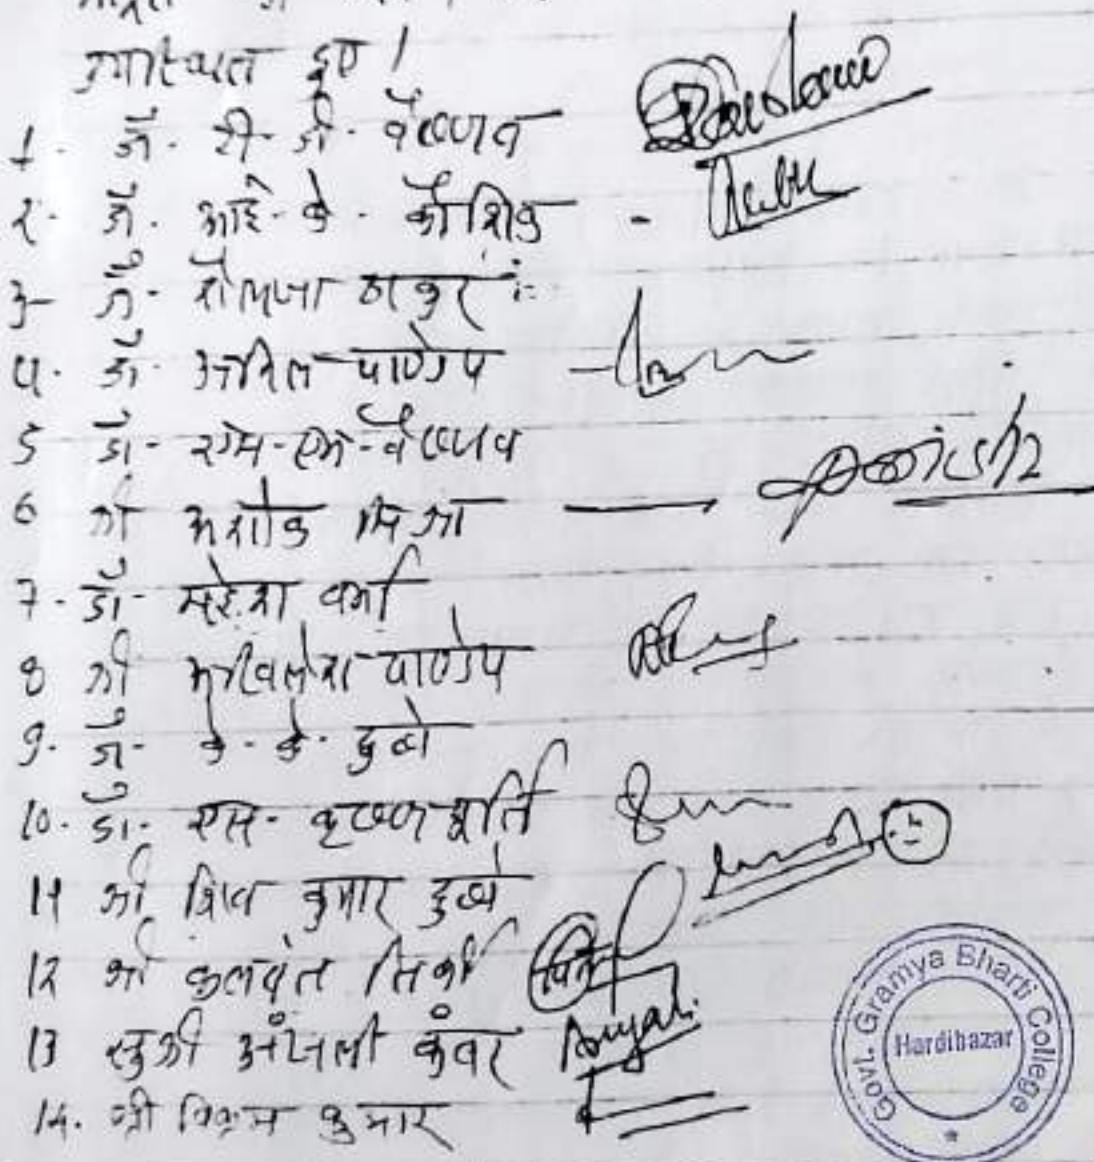 उपस्थित हुए।
1- डॉ- टी-डी- वैष्णव
2- डॉ. आई-के- कौशिक -
3- डॉ- ठाकुर
4. डॉ- अनिल पाण्डेय
5 डॉ- एम-एम-वैष्णव
6 श्री अशोक मिश्रा
7- डॉ- वर्मा
8 श्री अखिलेश पाण्डेय
9. डॉ- के-के- दुबे
10- डॉ- एस- कृष्णमूर्ति
11 श्री शिव कुमार दुबे
12 श्री कुलवंत तिर्की
13 सुश्री अंजली कंवर Anjali
14. श्री विक्रम कुमार
Govt. Gramya Bharti College
Hardibazar